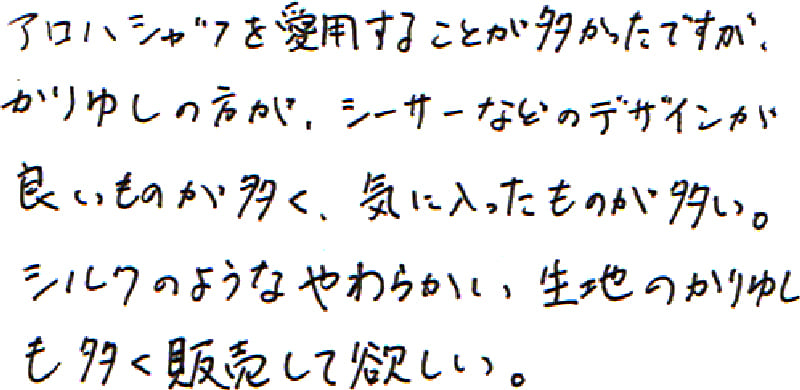 アロハシャツを愛用することが多かったですが、
かりゆしの方が、シーサーなどのデザインが
良いものが多く、気に入ったものが多い。
シルクのようなやわらかい、生地のかりゆし
も多く販売して欲しい。